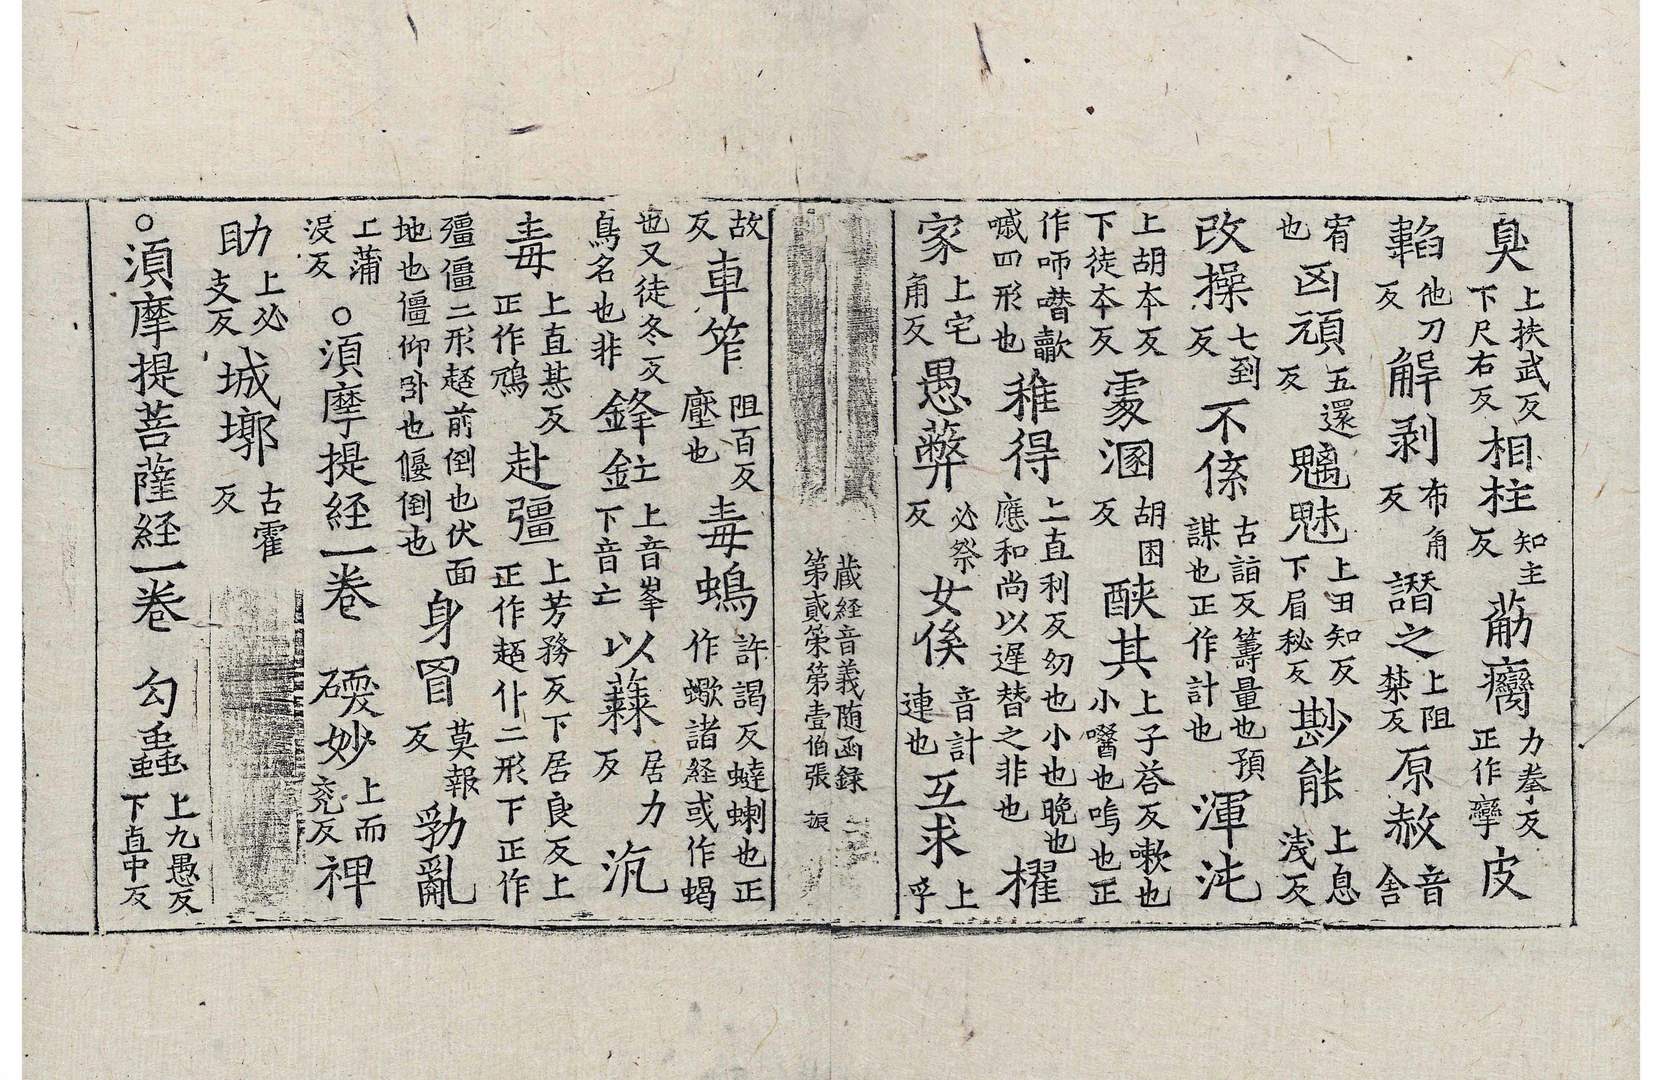 臭上扶武反下尺右反相柱知主反䈥癵力拳反正作攣皮
鞱他刀反解剥布角反譖之上阻禁反原赦音舍
宥也凶頑五還反魑魅上丑知反下眉秘反尠能上息淺反
改操七到反不傺古詣反籌量也預謀也正作計也渾沌
上胡本反下徒本反䨥溷胡困反䤆其上子荅反嗽也小嚼也嗚也正
作咂噆歃嘁四形也稚得上直利反幼也小也晚也應和尚以遲替之非也櫂
家上宅角反愚蘂必祭反女傒音計連也互求上乎
藏経音義随函録第貳筞第壹伯張 振
故反車笮阻百反壓也毒鴆許謁反蟽蝲也正作蠍諸経或作蝎
也又徒冬反鳥名也非鋒鋩上音峯下音亡以蘓居力反沉
毒上直甚反正作鴆赴彊上芳務反下居良反上正作䞳仆二形下正作
殭僵二形䞳前倒也伏面地也僵仰卧也偃倒也身冒莫報反勃亂
上蒲没反○湏摩提経一巻䂩妙上而兖反裨
助上必支反城墎古霍反
○湏摩提菩薩経一巻 勾蟲上九愚反下直中反